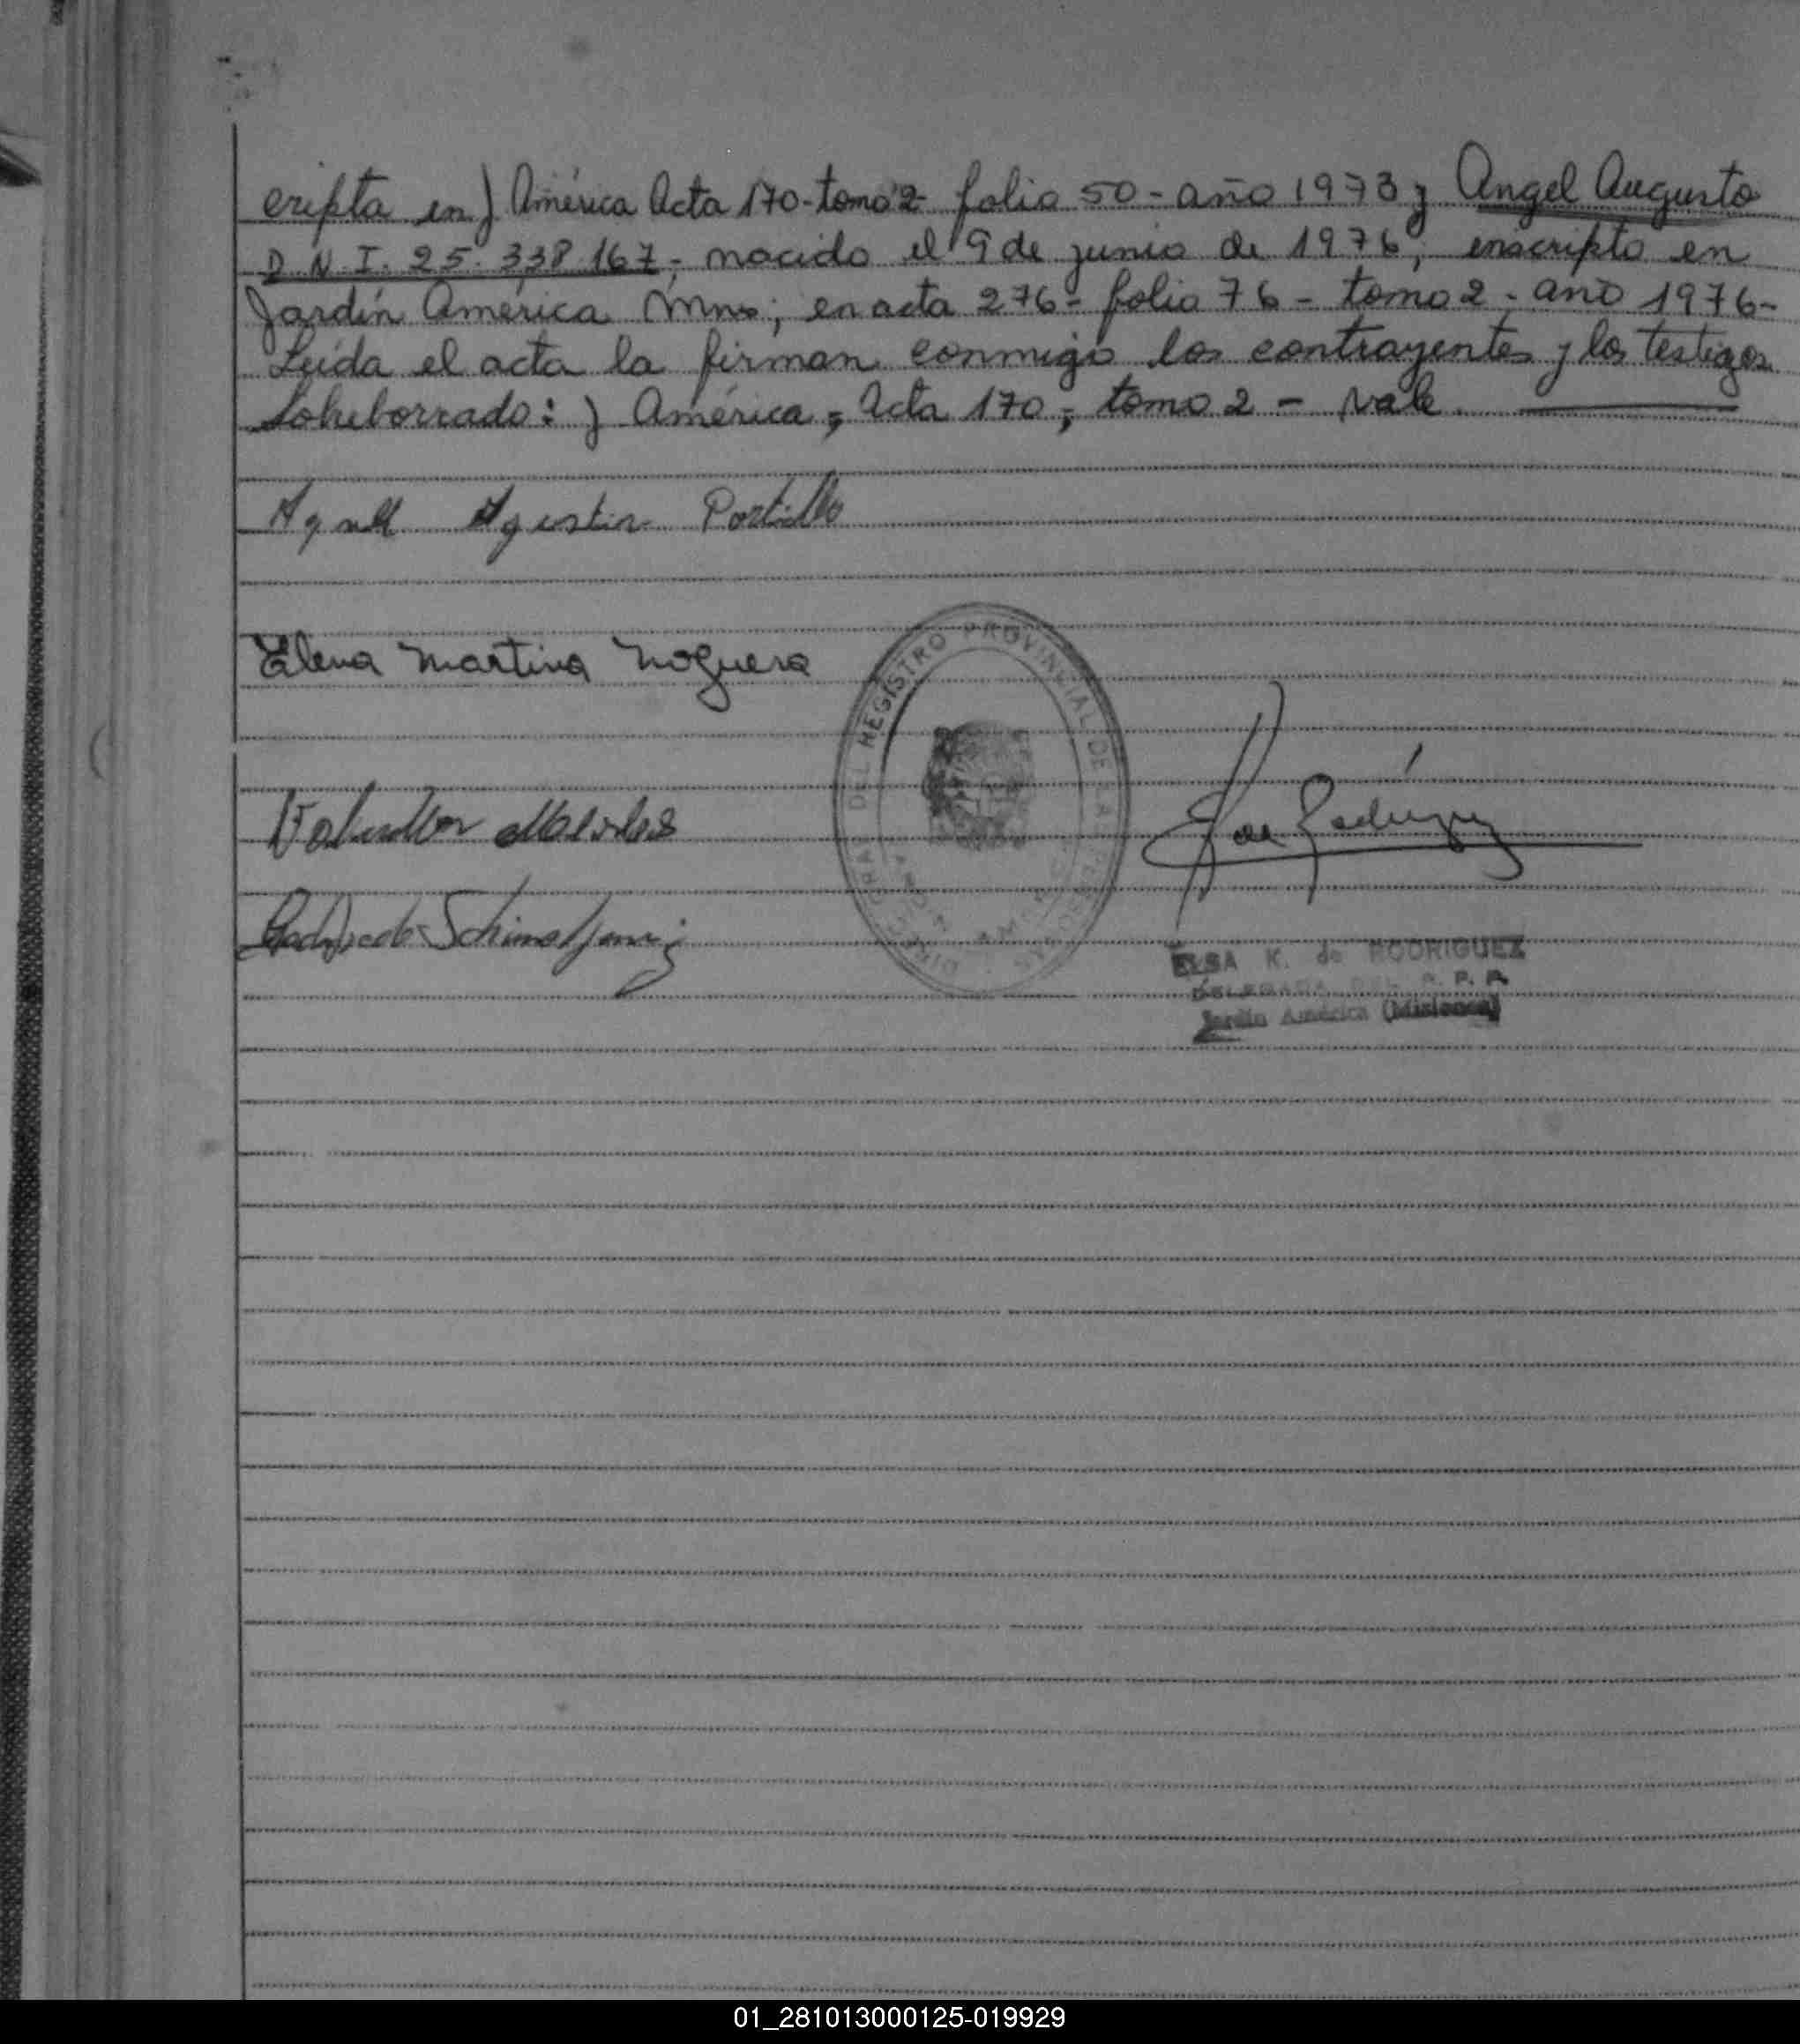 cripta en J América Acta 170-tomo 2- folio 50- año 1973 y Angel Augusto
D.N.I. 25.338.167; nacido el 9 de junio de 1976, inscripto en
Jardín América Mnes; en acta 276- folio 76- tomo 2- año 1976-
Leída el acta la firman conmigo los contrayentes y los testigos.
Sobreborrado: J América, Acta 170, tomo 2 - Vale.
Agustin Portillo
Elena Martina Noguera
DIRECCION GRAL DEL REGISTRO PROVINCIAL DE LAS PERSONAS
Rodriguez
ELSA K. de RODRIGUEZ
DELEGADA DEL R. P. P.
Jardín América (Misiones)
01_281013000125-019929